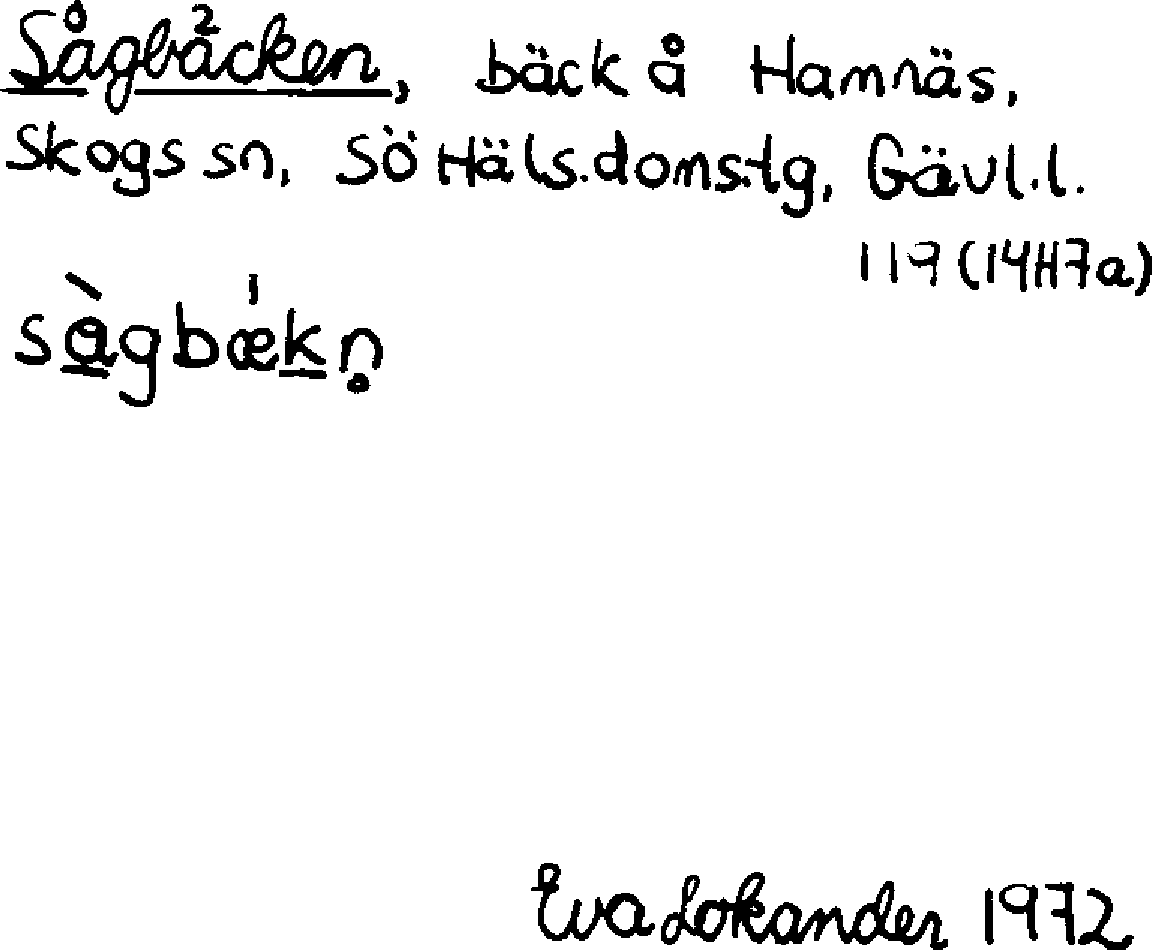 Sågbäcken, bäck å Hamnäs,
Skogs sn, Sö Häls.domstg, Gävl.l.
119 (14H7a)
sàgbǽkn̥
Eva Lokander 1972